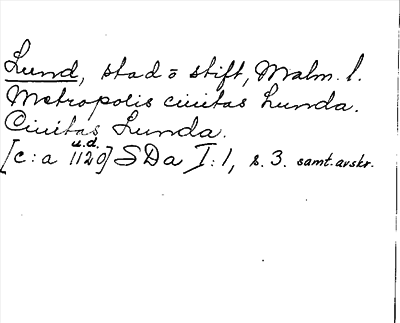 Lund, stad o stift, Malm. l.
Metropolis ciuitas Lunda.
Ciuitas Lunda.
u.d.
[c:a 1120] SDa I:1, s. 3. samt. avskr.